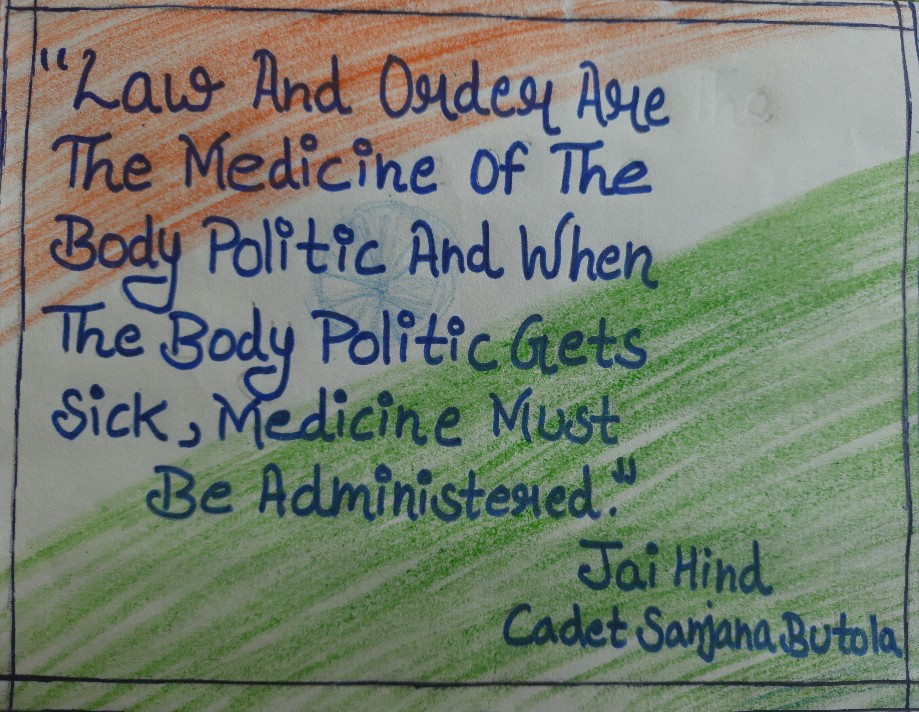 "Law And Order Are
The Medicine Of The
Body Politic And When
The Body Politic Gets
Sick, Medicine Must
Be Administered."
Jai Hind
Cadet Sanjana Butola